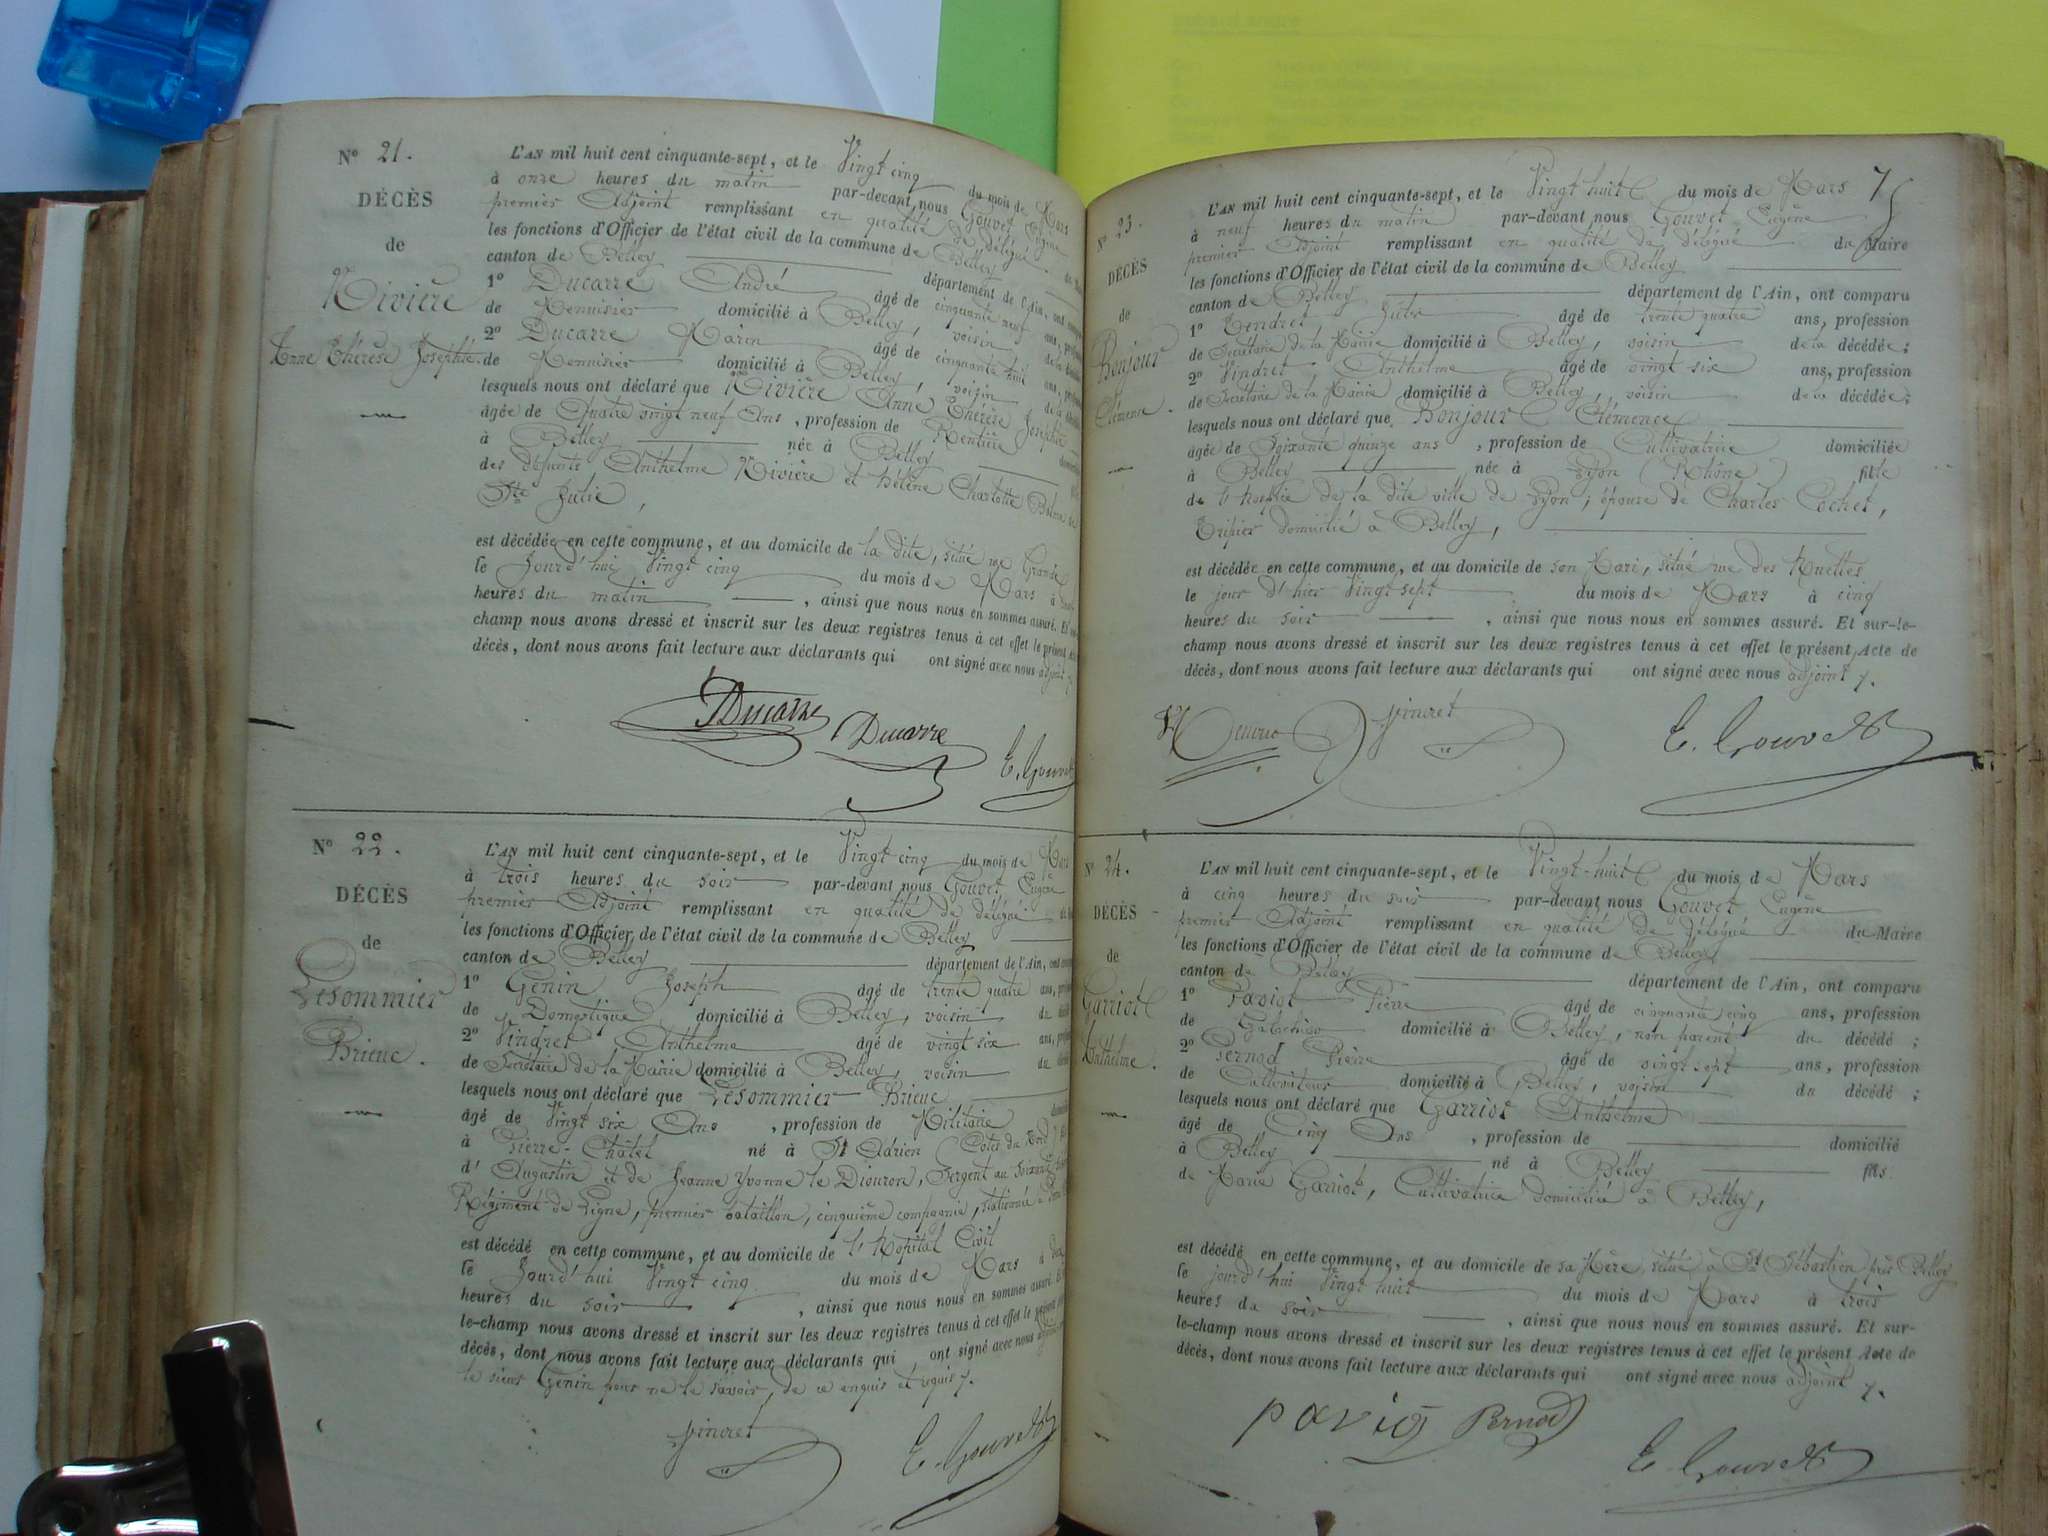 N° 21.
DÉCÈS
de
Rivière
Anne Thérèse Joséphte
L'AN mil huit cent cinquante-sept, et le Vingt cinq du mois de Mars
à onze heures du matin par-devant nous Gouvet Eugène
premier Adjoint remplissant en qualité de délégué
les fonctions d'Officier de l'état civil de la commune de Belley
canton de Belley département de l'Ain, ont
1° Ducarre André âgé de cinquante neuf ans,
de Menuisier domicilié à Belley, voisin de la
2° Ducarre Marin âgé de cinquante huit ans,
de Menuisier domicilié à Belley, voisin de la
lesquels nous ont déclaré que Rivière Anne Thérèse Josephte
âgée de Quatre vingt neuf Ans, profession de Rentière
à Belley née à Belley
des défunts Anthelme Rivière et Hélène Charlotte
Ste Julie,
est décédée en cette commune, et au domicile de la dite, située rue Grande
le Jourd'hui Vingt cinq du mois de Mars à
heures du matin, ainsi que nous nous en sommes assuré. Et
champ nous avons dressé et inscrit sur les deux registres tenus à cet effet le présent
décès, dont nous avons fait lecture aux déclarants qui ont signé avec nous adjoint
Ducarre
Ducarre
E. Gouvet
N° 22.
DÉCÈS
de
Lesommier
Brieuc.
L'AN mil huit cent cinquante-sept, et le Vingt cinq du mois de Mars
à trois heures du soir par-devant nous Gouvet Eugène
premier Adjoint remplissant en qualité de délégué
les fonctions d'Officier de l'état civil de la commune de Belley
canton de Belley département de l'Ain, ont
1° Genin Joseph âgé de trente quatre ans,
de Domestique domicilié à Belley, voisin du
2° Vindret Anthelme âgé de vingt six ans,
de Secrétaire de la Mairie domicilié à Belley, voisin du
lesquels nous ont déclaré que Lesommier Brieuc
âgé de Vingt six Ans, profession de Militaire
à Pierre-Châtel né à St Adrien (Côtes du Nord)
d'Augustin et de Jeanne Yvonne le Diouron, Sergent au Soixante
Régiment de Ligne, premier bataillon, cinquième compagnie, stationné à
est décédé en cette commune, et au domicile de l'Hopital Civil
le Jourd'hui Vingt cinq du mois de Mars à
heures du soir, ainsi que nous nous en sommes assuré.
le-champ nous avons dressé et inscrit sur les deux registres tenus à cet effet le présent
décès, dont nous avons fait lecture aux déclarants qui, ont signé avec nous
le sieur Genin pour ne le savoir, de ce enquis et requis.
Vindret
E. Gouvet
75
N° 23.
DÉCÈS
de
Bonjour
Clémence.
L'AN mil huit cent cinquante-sept, et le Vingt huit du mois de Mars
à neuf heures du matin par-devant nous Gouvet Eugène
premier Adjoint remplissant en qualité de délégué du Maire
les fonctions d'Officier de l'état civil de la commune de Belley
canton de Belley département de l'Ain, ont comparu
1° Tendret Jules âgé de trente quatre ans, profession
de Secrétaire de la Mairie domicilié à Belley, voisin de la décédée;
2° Vindret Anthelme âgé de vingt six ans, profession
de Secrétaire de la Mairie domicilié à Belley, voisin de la décédée;
lesquels nous ont déclaré que Bonjour Clémence
âgée de Soixante quinze ans, profession de Cultivatrice domiciliée
à Belley née à Lyon (Rhône) fille
de l'hospice de la dite ville de Lyon; épouse de Charles Cochet,
Tripier domicilié à Belley,
est décédée en cette commune, et au domicile de son Mari, situé rue des Ruelles
le jour d'hier Vingt sept du mois de Mars à cinq
heures du soir, ainsi que nous nous en sommes assuré. Et sur-le-
champ nous avons dressé et inscrit sur les deux registres tenus à cet effet le présent Acte de
décès, dont nous avons fait lecture aux déclarants qui ont signé avec nous adjoint.
Vindret
E. Gouvet
N° 24.
DÉCÈS
de
Garriot
Anthelme.
L'AN mil huit cent cinquante-sept, et le Vingt-huit du mois de Mars
à cinq heures du soir par-devant nous Gouvet Eugène
premier Adjoint remplissant en qualité de délégué du Maire
les fonctions d'Officier de l'état civil de la commune de Belley
canton de Belley département de l'Ain, ont comparu
1° Paviot Pierre âgé de cinquante cinq ans, profession
de domicilié à Belley, non parent du décédé;
2° Pernod Pierre âgé de vingt sept ans, profession
de Cultivateur domicilié à Belley, voisin du décédé;
lesquels nous ont déclaré que Garriot Anthelme
âgé de Cinq Ans, profession de domicilié
à Belley né à Belley fils
de Marie Garriot, Cultivatrice domiciliée à Belley,
est décédé en cette commune, et au domicile de sa Mère, situé à St Sébastien près Belley
le jourd'hui Vingt huit du mois de Mars à trois
heures du soir, ainsi que nous nous en sommes assuré. Et sur-
le-champ nous avons dressé et inscrit sur les deux registres tenus à cet effet le présent Acte de
décès, dont nous avons fait lecture aux déclarants qui ont signé avec nous adjoint.
paviot Pernod
E. Gouvet